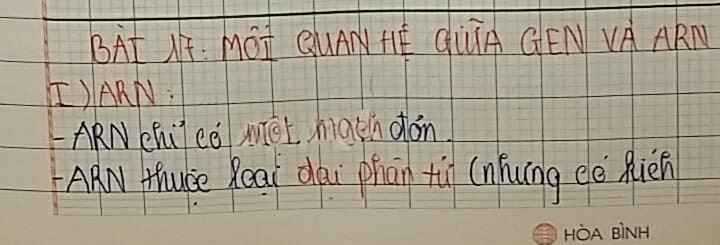 BÀI 17: MỐI QUAN HỆ GIỮA GEN VÀ ARN
I) ARN:
- ARN chỉ có một mạch đơn.
- ARN thuộc loại đại phân tử (nhưng có kích
HÒA BÌNH